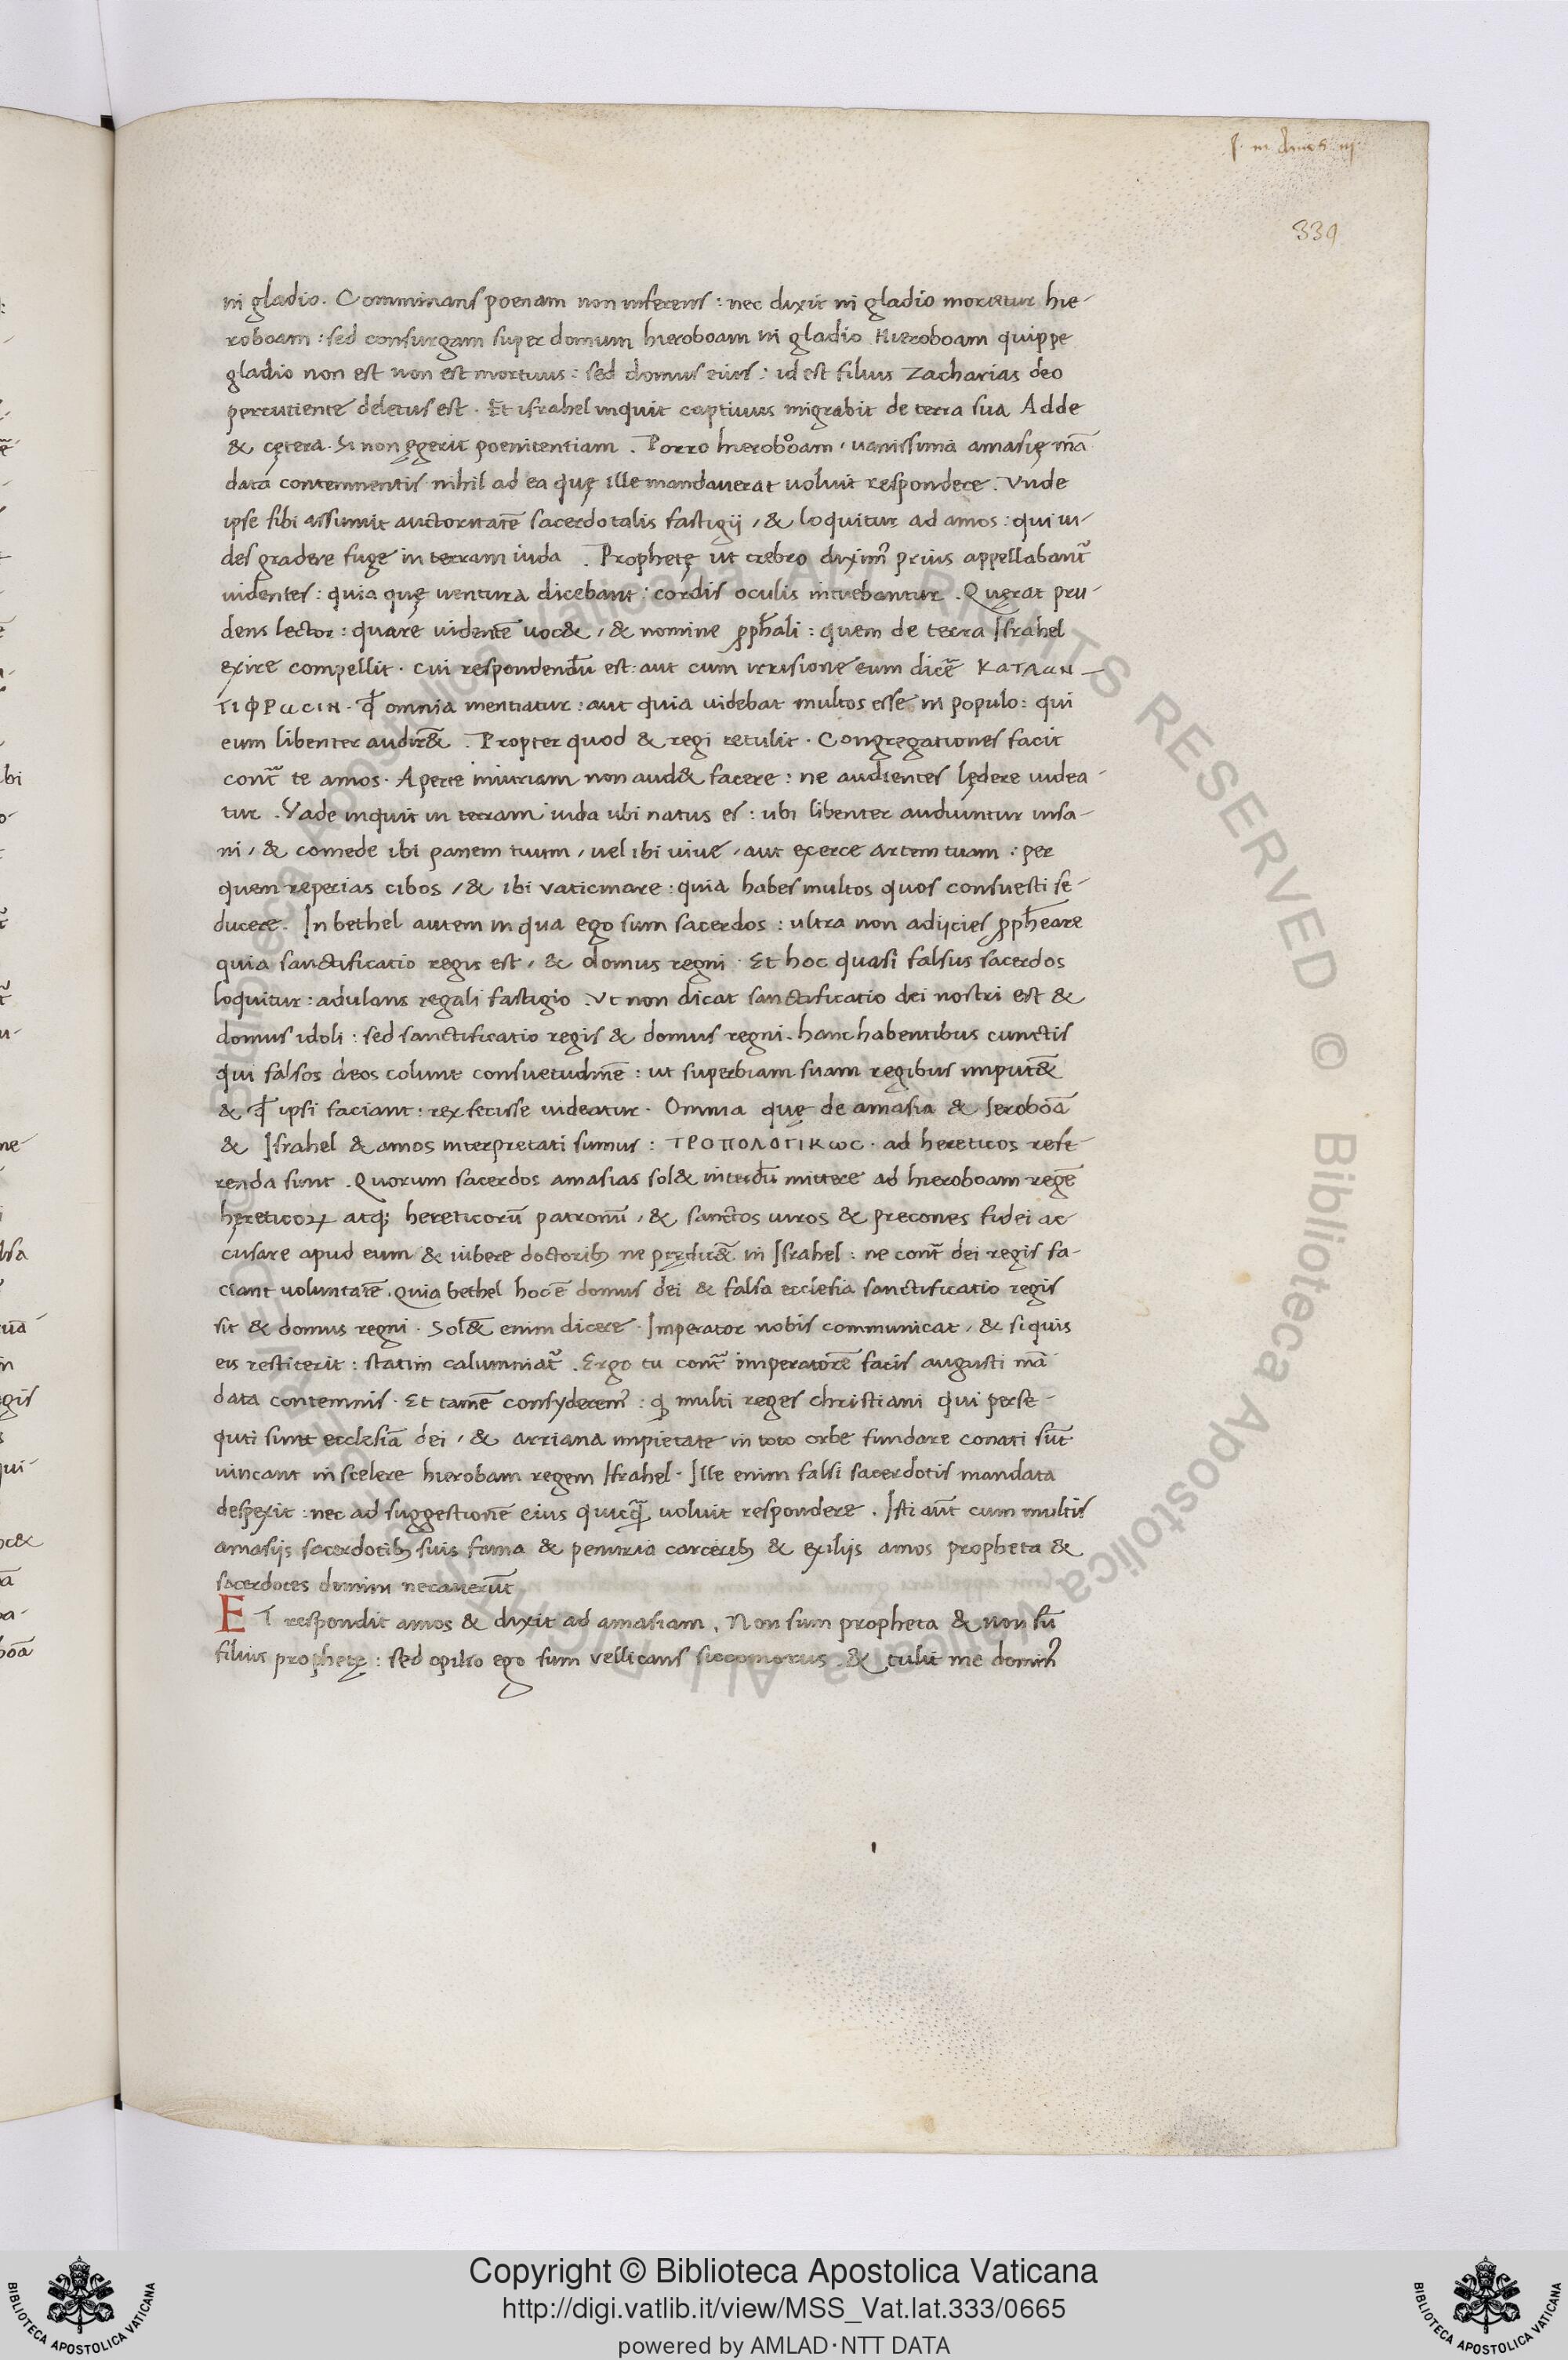 334
in gladio. Comminans poenam non inferens : nec dixit in gladio morietur hie-
roboam : sed consurgam super domum hieroboam in gladio Hieroboam quippe
gladio non est non est mortuus : sed domus eius : id est filius Zacharias deo
percutiente deletus est . Et israhel inquit captiuus migrabit de terra sua Adde
& cętera . Si non ęgerit poenitentiam . Porro hieroboam , uanissima amasię mā
data contemnentis nihil ad ea quę ille mandauerat uoluit respondere . Vnde
ipse sibi assumit auctoritatē sacerdotalis fastigij , & loquitur ad amos : qui ui-
des gradere fuge in terram iuda . Prophetę ut crebro diximꝰ prius appellabant᷑
uidentes : quia quę uentura dicebant : cordis oculis intuebantur . Quęrat pru-
dens lector : quare uidentē uoc& , & nomine ꝓph̄ali : quem de terra Israhel
exire compellit . cui respondendū est : aut cum irrisione eum dicē ΚΑΤΑΑΝ-
ΤΙΦΡΑCΙΝ . ꝙ omnia mentiatur : aut quia uidebat multos esse in populo : qui
eum libenter audir& . Propter quod & regi retulit . Congregationes facit
cont᷑ te amos . Aperte iniuriam non aud& facere : ne audientes lędere uidea-
tur . Vade inquit in terram iuda ubi natus es : ubi libenter audiuntur insa-
ni , & comede ibi panem tuum , uel ibi uiue , aut exerce artem tuam : per
quem reperias cibos , & ibi vaticinare : quia habes multos quos consuesti se-
ducere . In bethel autem in qua ego sum sacerdos : ultra non adijcies ꝓph̄eare
quia sanctificatio regis est , & domus regni . Et hoc quasi falsus sacerdos
loquitur : adulans regali fastigio . Vt non dicat sanctificatio dei nostri est &
domus idoli : sed sanctificatio regis & domus regni . hanc habentibus cunctis
qui falsos deos colunt consuetudinē : ut superbiam suam regibus imput&̄
& ꝙ ipsi faciant : rex fecisse uideatur . Omnia quę de amasia & Ieroboā
& Israhel & amos interpretati sumus : ΤΡΟΠΟΛΟΓΙΚωC . ad hereticos refe-
renda sunt . Quorum sacerdos amasias sol& interdū mittere ad hieroboam regē
hęreticoꝝ atq; hereticorū patronū , & sanctos uiros & precones fidei ac-
cusare apud eum & iubere doctorib; ne prędic&̄ in Israhel : ne cont᷑ dei regis fa-
ciant uoluntatē . quia bethel hoc ē domus dei & falsa ecclesia sanctificatio regis
sit & domus regni . Sol&̄ enim dicere . Imperator nobis communicat , & si quis
eis restiterit : statim calumniat᷑ . Ergo tu cont᷑ imperatorē facis augusti mā
data contemnis . Et tamē consyderemꝰ : ꝙ multi reges christiani qui perse-
quti sunt ecclesiā dei , & arriana impietate in toto orbe fundare conati sūt
uincant in scelere hierobam regem Israhel . Ille enim falsi sacerdotis mandata
despexit : nec ad suggestionē eius quicꝗ̄ uoluit respondere . Isti aūt cum multis
amasijs sacerdotib; suis fama & penuria carcerib; & exilijs amos propheta &
sacerdotes domini necauerūt
ET respondit amos & dixit ad amasiam . Non sum propheta & non sū
filius prophetę : sed opilio ego sum vellicans siccomorus . & tulit me dominꝰ
Copyright © Biblioteca Apostolica Vaticana
http://digi.vatlib.it/view/MSS_Vat.lat.333/0665
powered by AMLAD·NTT DATA